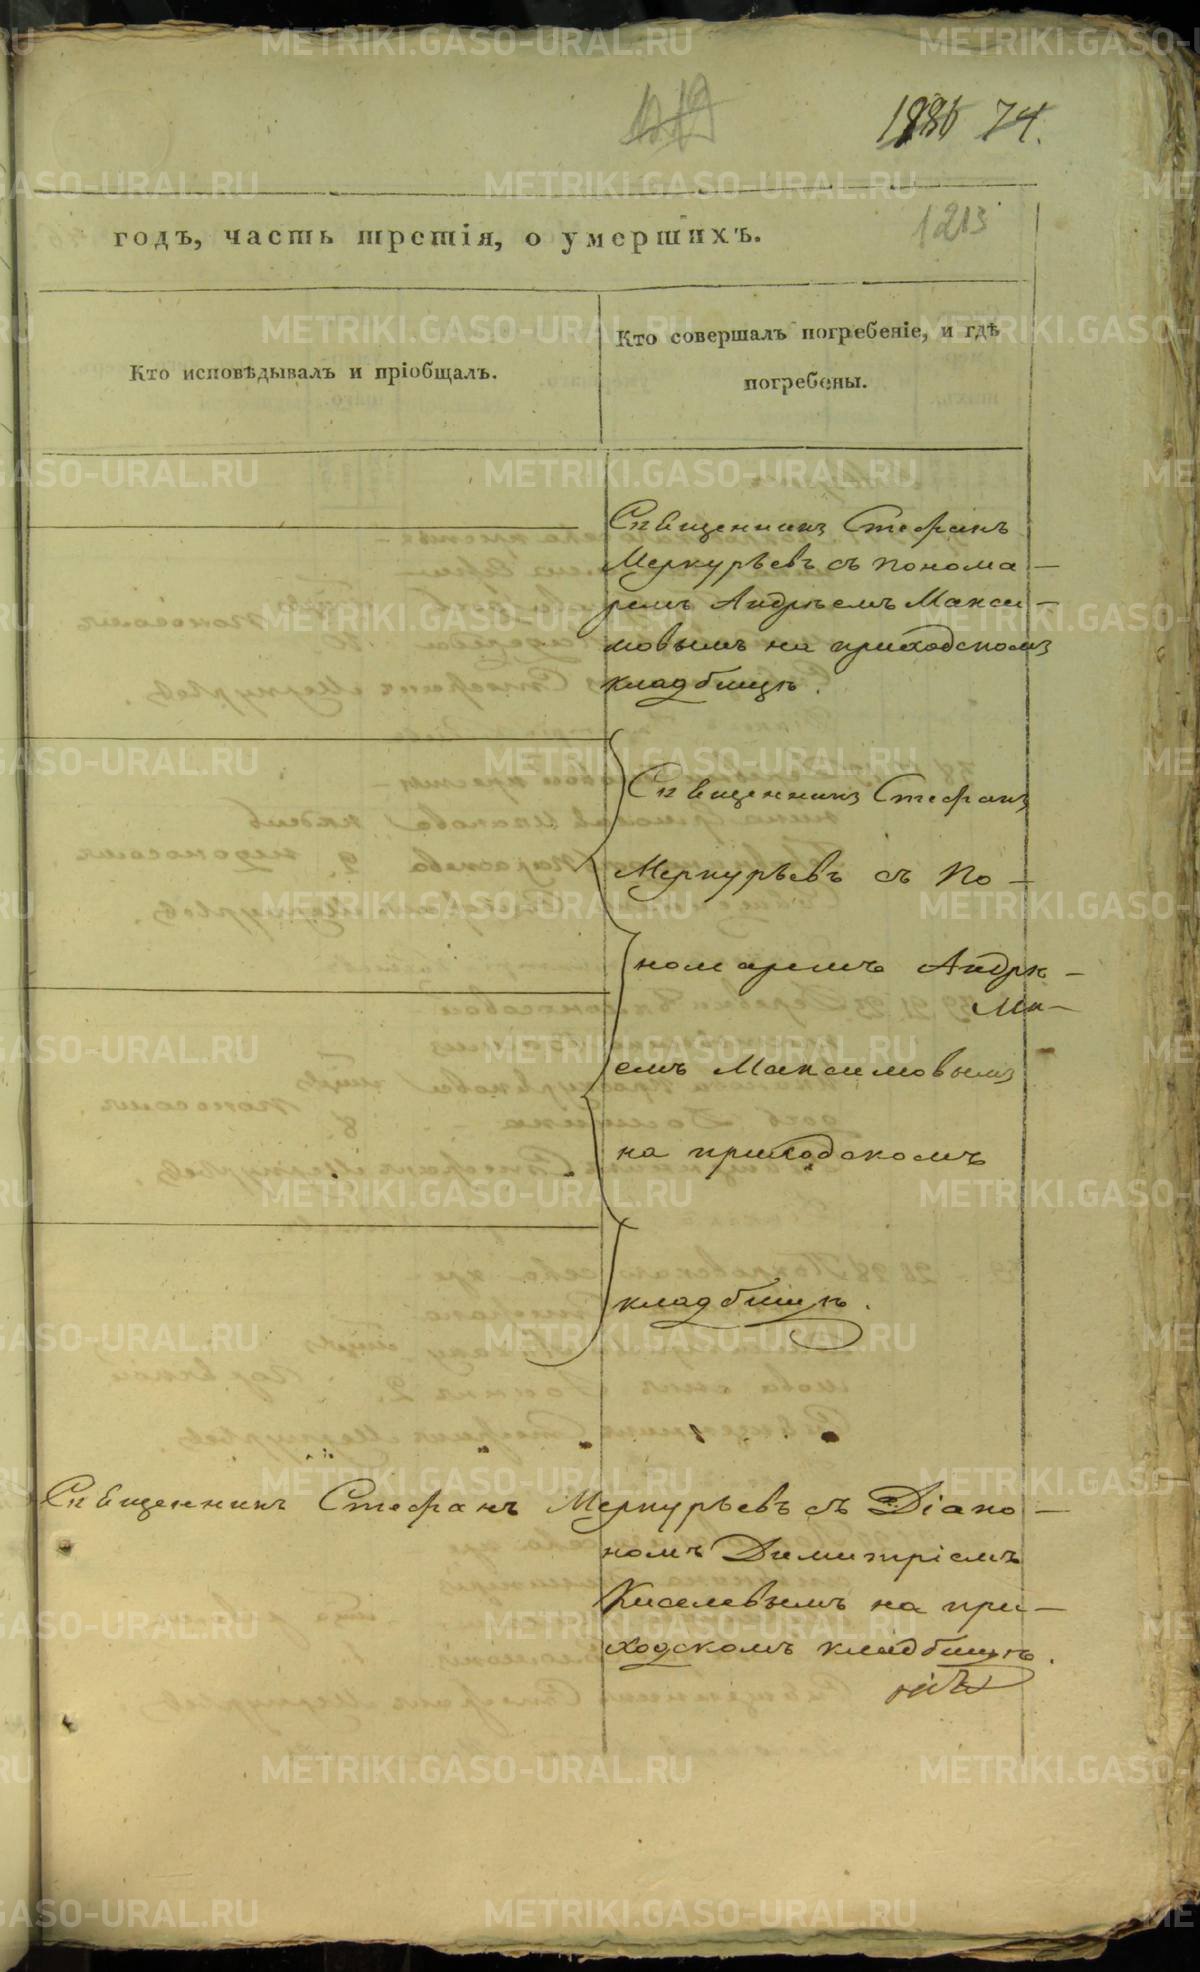 74.
1213
годъ, часть третія, о умершихъ.
Кто исповѣдывалъ и пріобщалъ.
Кто совершалъ погребеніе, и гдѣ
погребены.
Священникъ Стефанъ
Меркурьевъ съ понома-
ремъ Андрѣемъ Макси-
мовымъ на приходскомъ
кладбищѣ.
Священникъ Стефанъ
Меркурьевъ съ По-
номаремъ Андрѣ-
емъ Максимовымъ
на приходскомъ
кладбищѣ.
Священникъ Стефанъ Меркурьевъ съ Діако-
номъ Димитріемъ
Киселевымъ на при-
ходскомъ кладбищѣ.
METRIKI.GASO-URAL.RU